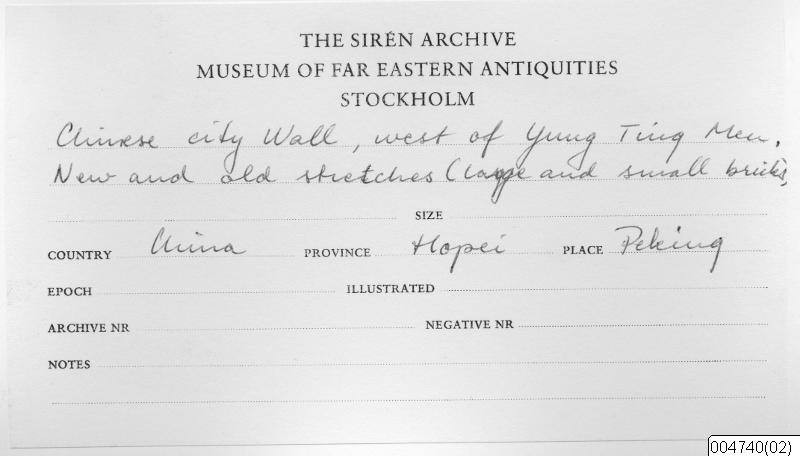 THE SIRÉN ARCHIVE
MUSEUM OF FAR EASTERN ANTIQUITIES
STOCKHOLM
Chinese city Wall, west of Yung Ting Men.
New and old stretches (large and small bricks)
SIZE
COUNTRY China PROVINCE Hopei PLACE Peking
EPOCH ILLUSTRATED
ARCHIVE NR NEGATIVE NR
NOTES
004740(02)